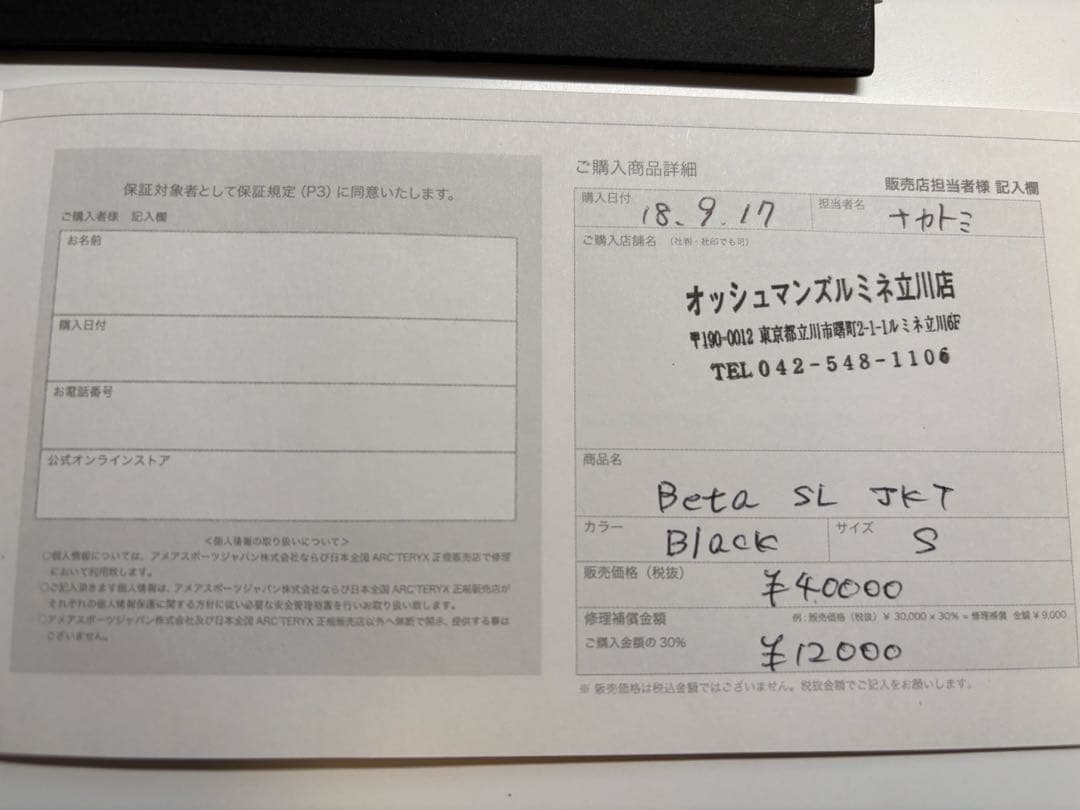 保証対象者として保証規定(P3)に同意いたします。
ご購入者様 記入欄
お名前
購入日付
お電話番号
公式オンラインストア
<個人情報の取り扱いについて>
○個人情報については、アメアスポーツジャパン株式会社ならび日本全国 ARC'TERYX 正規販売店で修理
において利用致します。
○ご記入頂きます個人情報は、アメアスポーツジャパン株式会社ならび日本全国 ARC'TERYX 正規販売店が
それぞれの個人情報保護に関する方針に従い必要な安全管理措置を行いお取り扱い致します。
○アメアスポーツジャパン株式会社及び日本全国 ARC'TERYX 正規販売店以外へ無断で開示、提供する事は
ございません。
ご購入商品詳細
販売店担当者様 記入欄
購入日付 18.9.17
担当者名 ナカトミ
ご購入店舗名 (社判・社印でも可)
オッシュマンズルミネ立川店
〒190-0012 東京都立川市曙町2-1-1ルミネ立川6F
TEL 042-548-1106
商品名
Beta SL JKT
カラー Black
サイズ S
販売価格(税抜)
¥40000
修理補償金額
例:販売価格(税抜)¥ 30,000 × 30% = 修理補償 金額 ¥9,000
ご購入金額の 30%
¥12000
※ 販売価格は税込金額ではございません。税抜金額でご記入をお願いします。